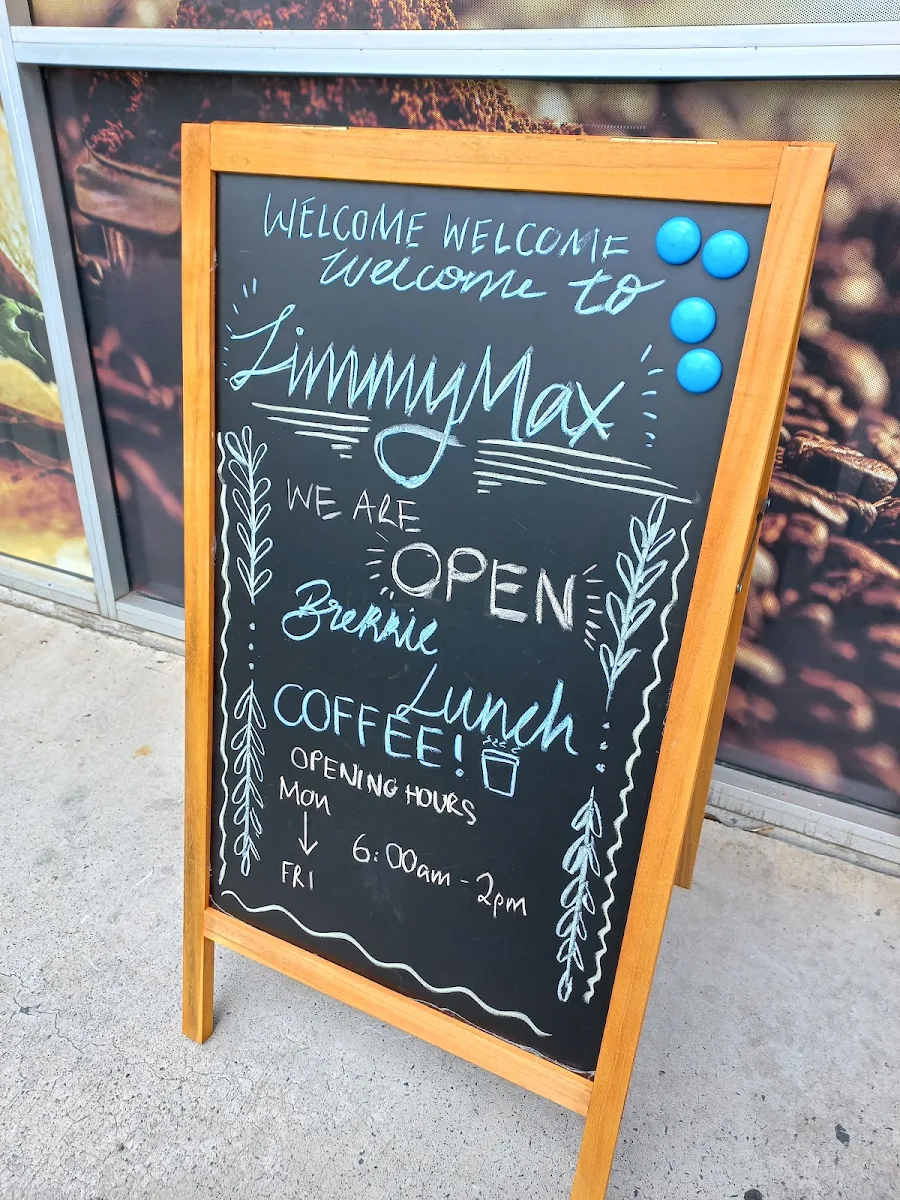 WELCOME WELCOME
Welcome to
LimmyMax
WE ARE
OPEN
Brekkie
Lunch
COFFEE!
OPENING HOURS
Mon
↓
FRI
6:00am - 2pm